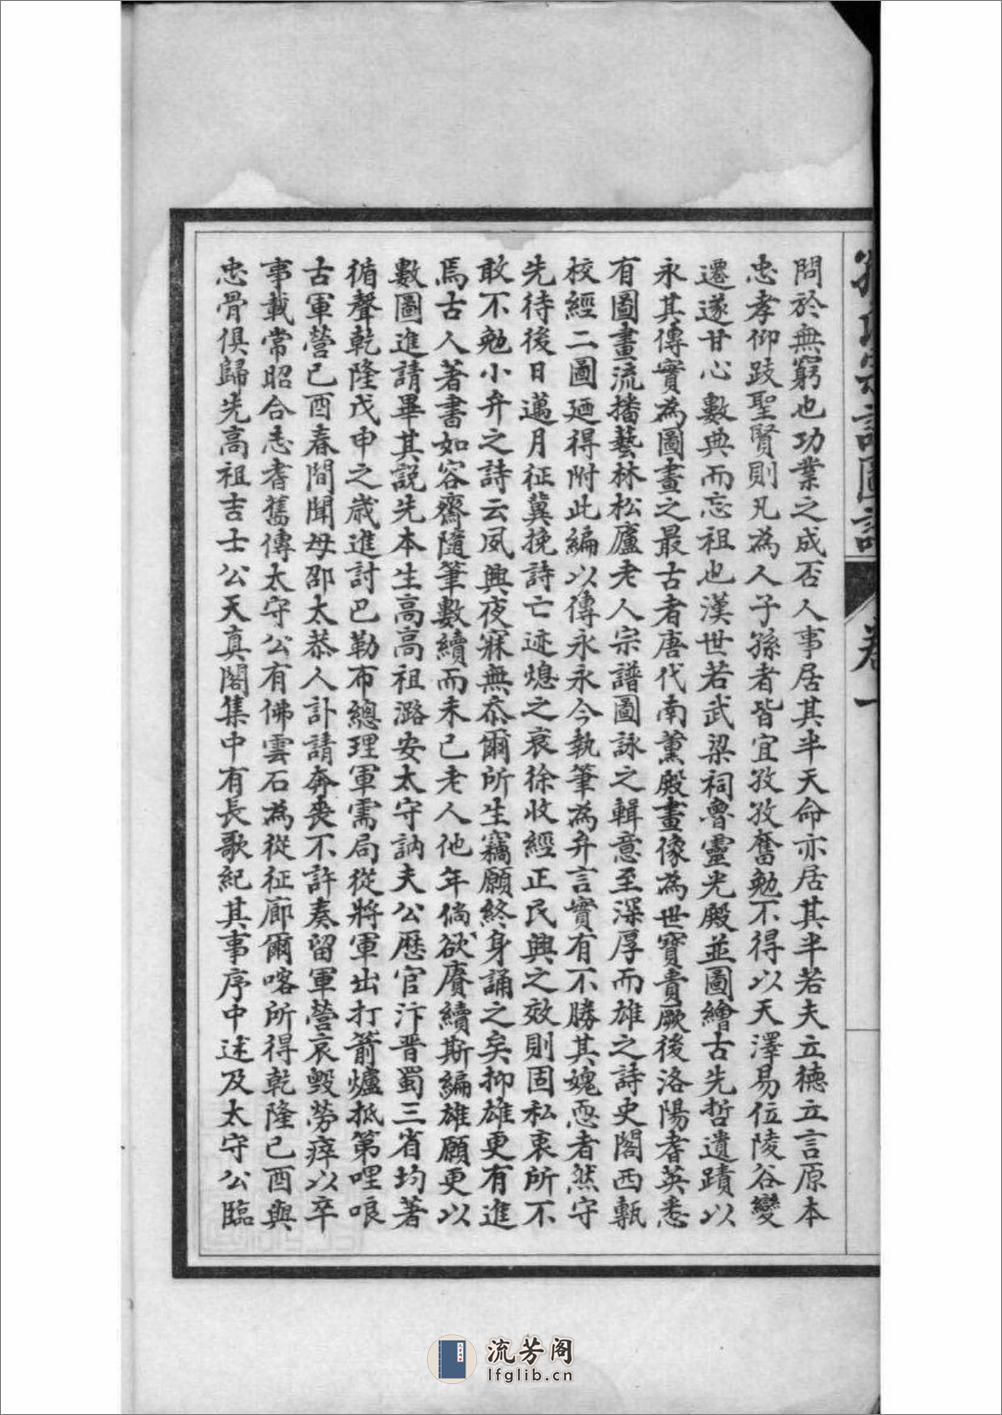 問於無窮也功業之成否人事居其半天命亦居其半若夫立德立言原本
忠孝仰跂聖賢則凡為人子孫者皆宜孜孜奮勉不得以天澤易位陵谷變
遷遂甘心數典而忘祖也漢世若武梁祠魯靈光殿並圖繪古先哲遺蹟以
永其傳實為圖畫之最古者唐代南薰殿畫像為世寶貴厥後洛陽耆英悉
有圖畫流播藝林松廬老人宗譜圖詠之輯意至深厚而雄之詩史閣西甎
校經二圖廼得附此編以傳永永今執筆為弁言實有不勝其媿恧者然守
先待後日邁月征冀挽詩亡迹熄之哀徐收經正民興之效則固私衷所不
敢不勉小弁之詩云夙興夜寐無忝爾所生竊願終身誦之矣抑雄更有進
焉古人著書如容齋隨筆數續而未已老人他年倘欲賡續斯編雄願更以
數圖進請畢其說先本生高高祖潞安太守訥夫公歷官汴晉蜀三省均著
循聲乾隆戊申之歲進討巴勒布總理軍需局從將軍出打箭爐抵第哩哴
古軍營己酉春間聞母邵太恭人訃請奔喪不許奏留軍營哀毀勞瘁以卒
事載常昭合志耆舊傳太守公有佛雲石為從征廓爾喀所得乾隆己酉與
忠骨俱歸先高祖吉士公天真閣集中有長歌紀其事序中述及太守公臨
宗譜圖詠
卷一
流芳阁
lfglib.cn